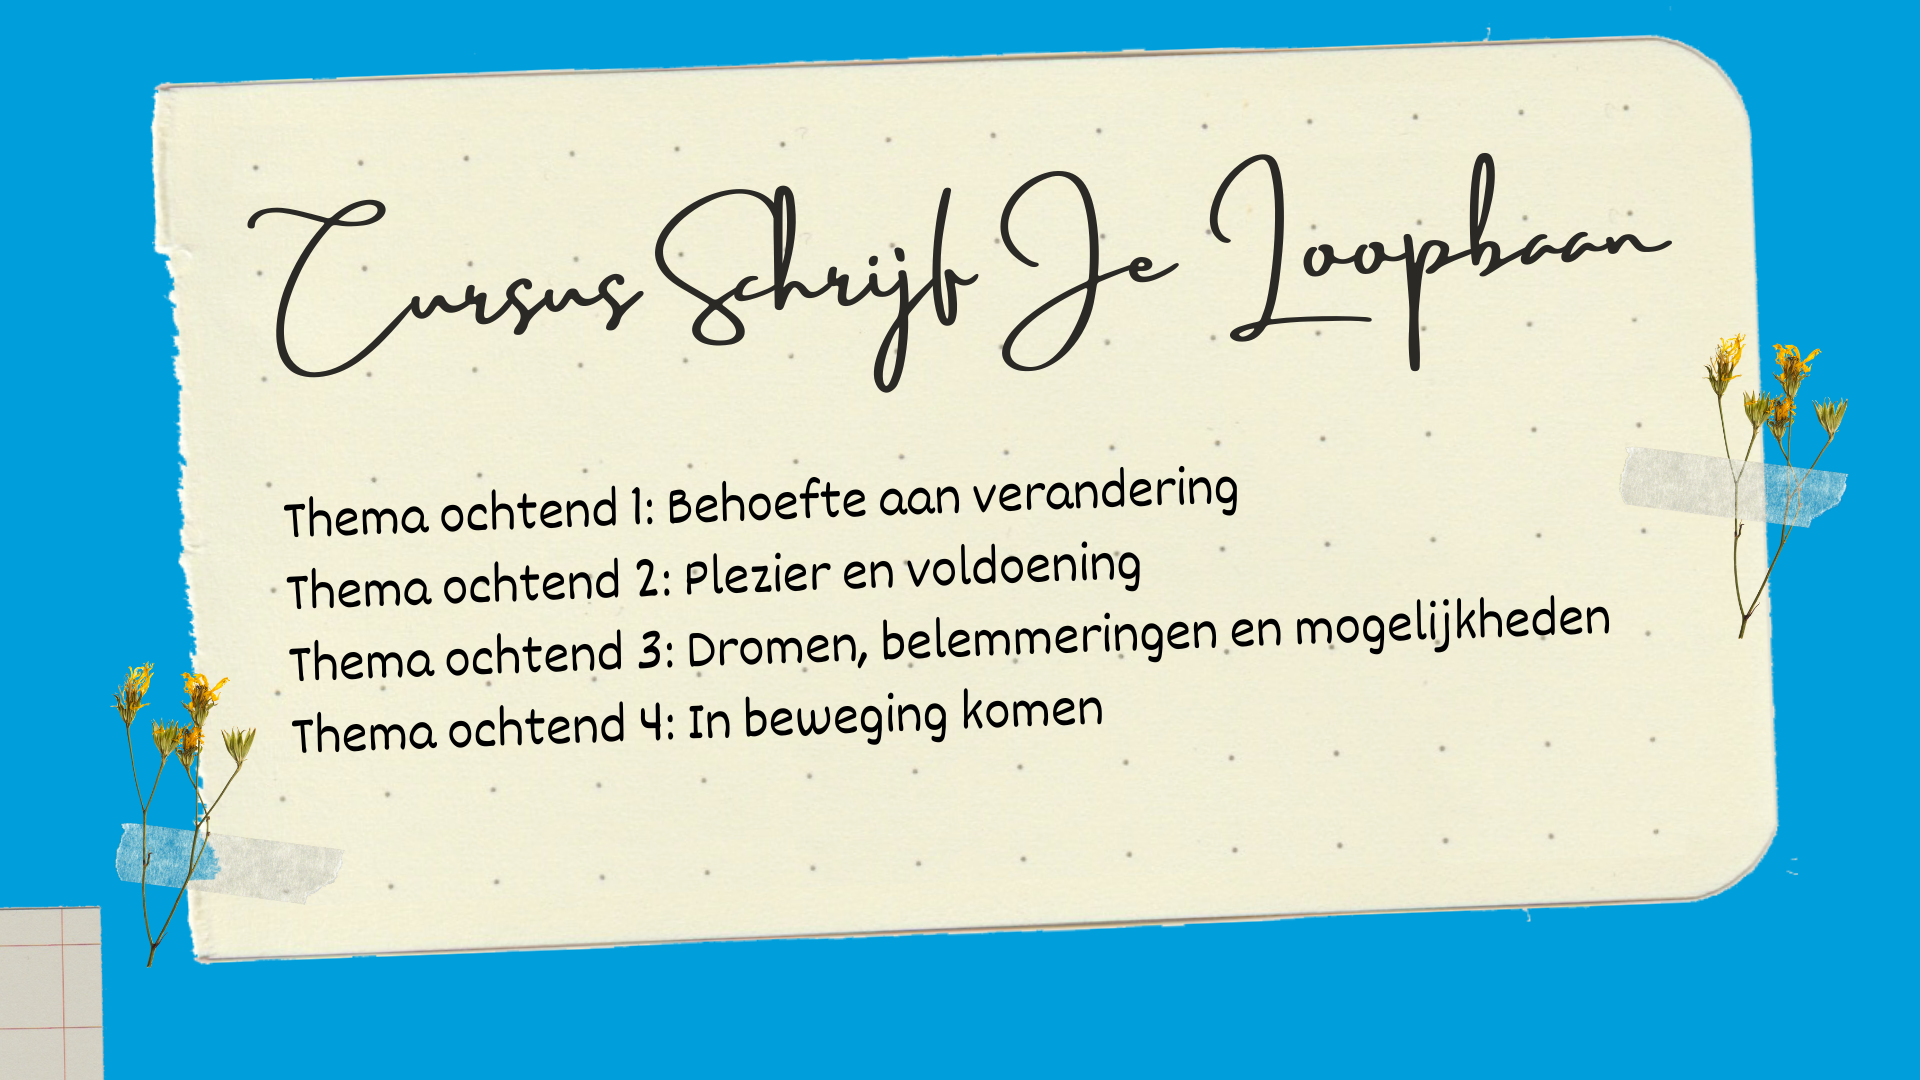 Cursus Schrijf Je Loopbaan
Thema ochtend 1: Behoefte aan verandering
Thema ochtend 2: Plezier en voldoening
Thema ochtend 3: Dromen, belemmeringen en mogelijkheden
Thema ochtend 4: In beweging komen